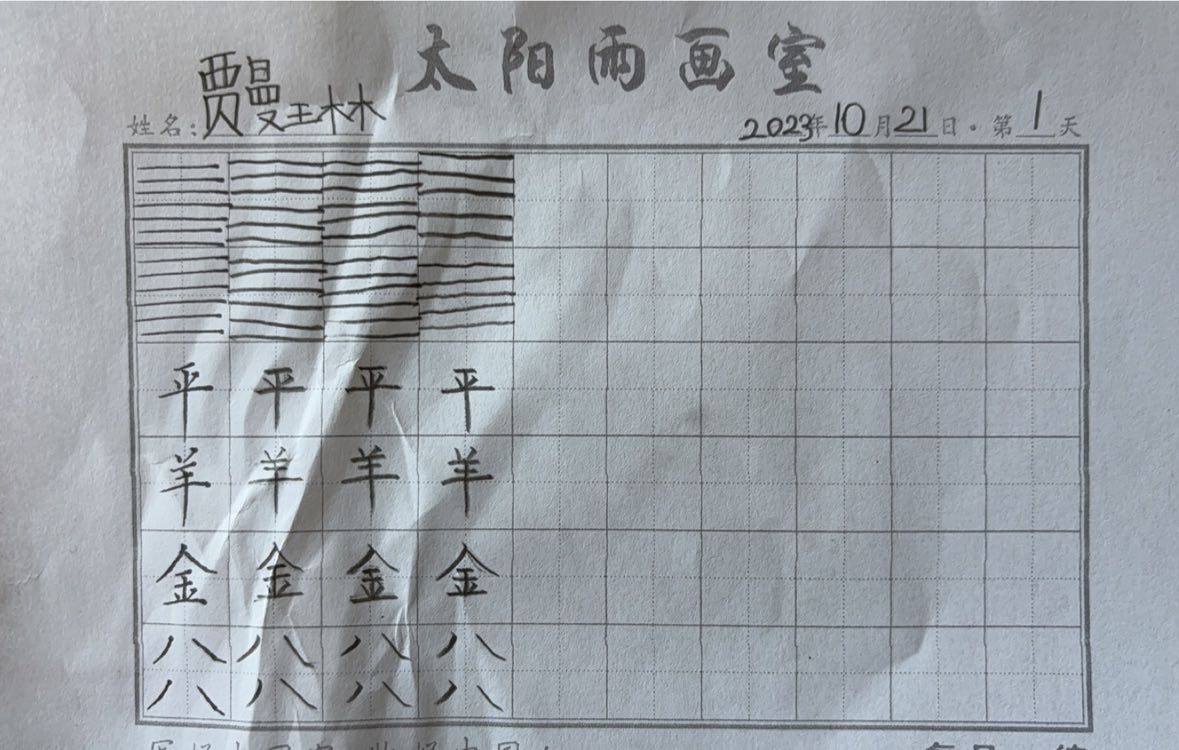 太阳雨画室
姓名:贾曼琳 2023年10月21日·第1天
平平平平
羊羊羊羊
金金金金
八八八八
八八八八